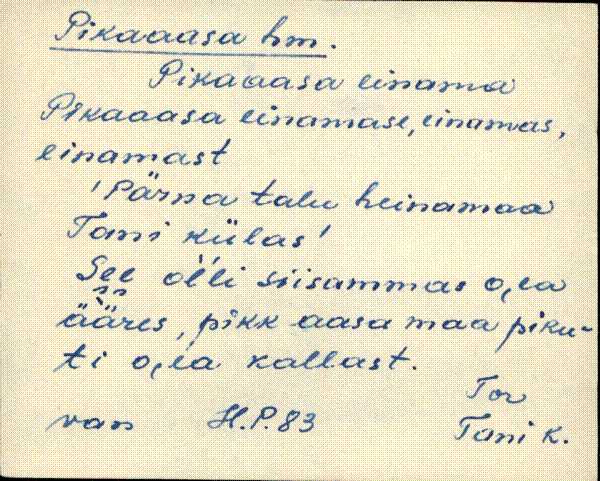 Pikaaasa hm.
Pikaaasa einama
Pikaaasa einamase, einamas,
einamast
'Pärna talu heinamaa
Tani külas'
See ol'li siisammas o,ja
ääres, pikk aasa maa piku-
ti o,ja kallast.
Tor
van H.P.83 Tani k.